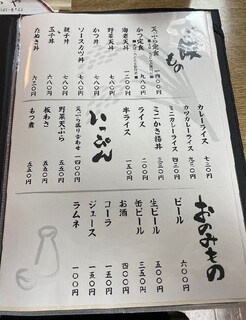 ご飯もの
天ぷら定食 一、四〇〇円
かつ定食 九八〇円
海老天丼
野菜天丼 七八〇円
かつ丼 七八〇円
ソースカツ丼 七八〇円
親子丼 七八〇円
玉子丼
たぬき丼 六二〇円
カレーライス 七三〇円
カツカレーライス 九三〇円
ミニカレーライス 四二〇円
ミニかき揚丼 四三〇円
ライス 二〇〇円
半ライス 一五〇円
いっぴん
天ぷら盛り合わせ 一四〇〇円
野菜天ぷら 五五〇円
板わさ 五五〇円
もつ煮 五五〇円
おのみもの
ビール 六〇〇円
生ビール 五五〇円
缶ビール 三五〇円
お酒 四〇〇円
コーラ 一五〇円
ジュース 一五〇円
ラムネ 一〇〇円